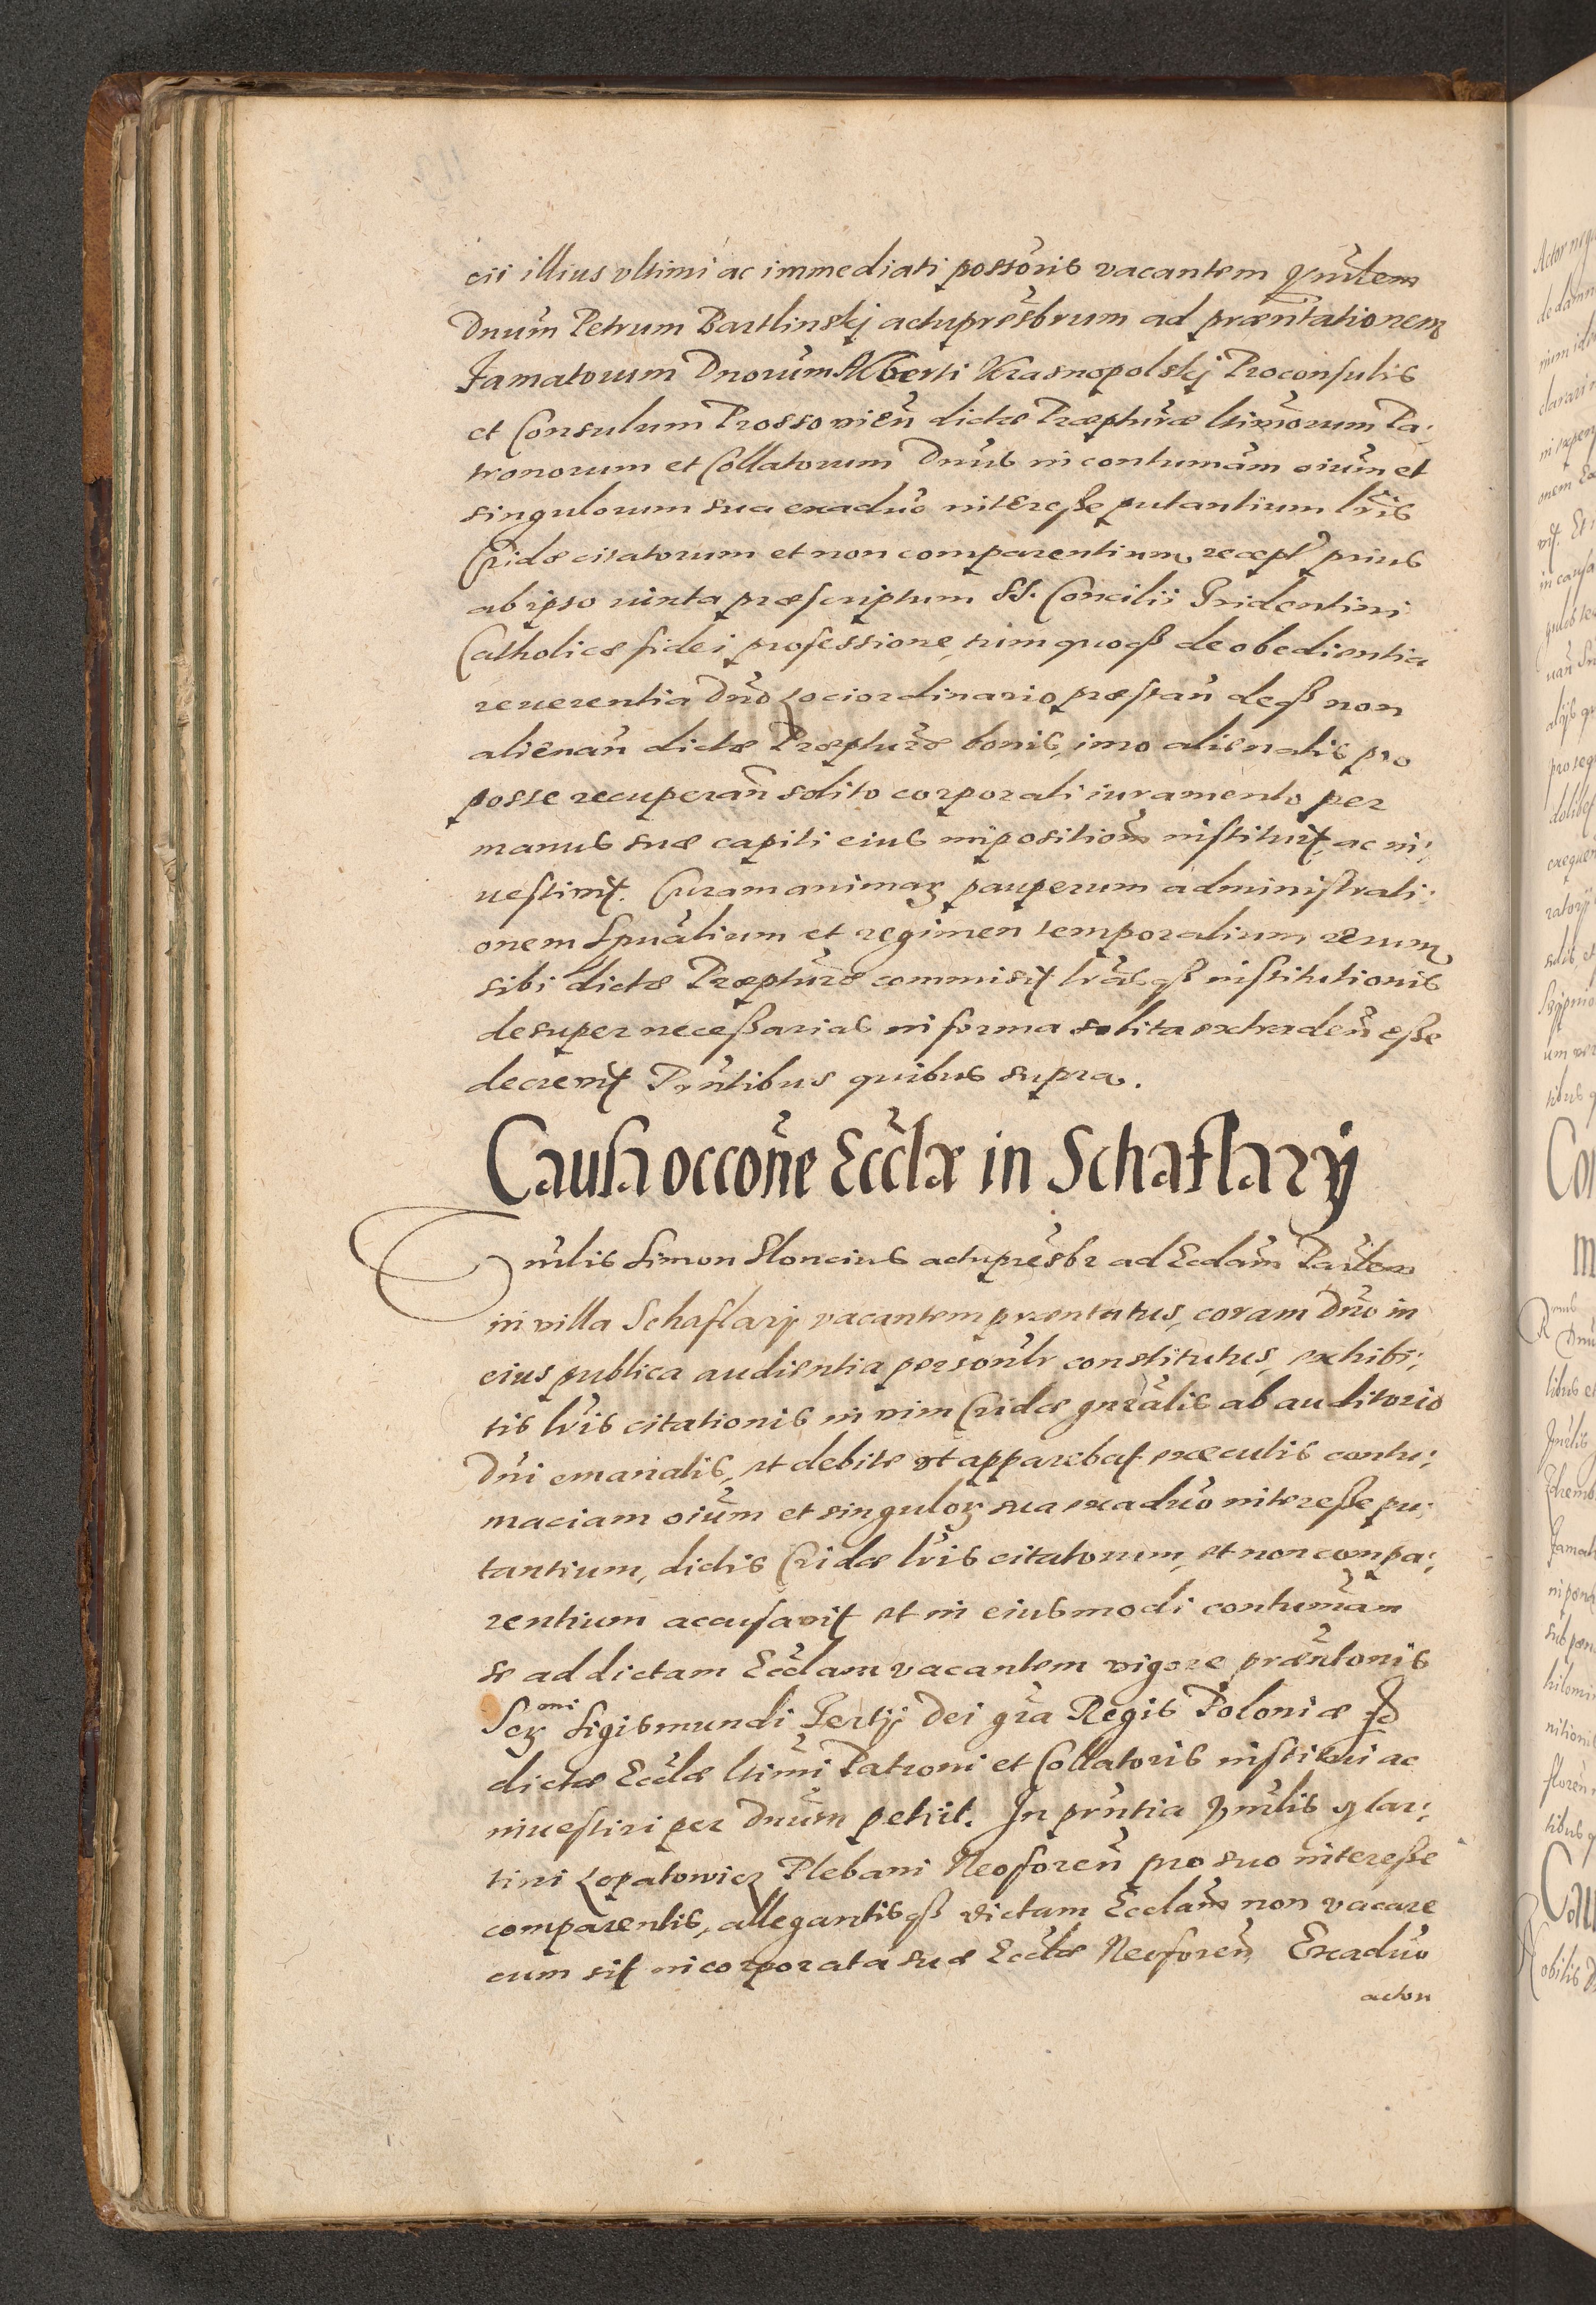 cii illius vltimi ac immediati possōris vacantem Hnūlem
Dnum Petrum Bartlinskj actupresbrum ad præntationem
Famatorum Dnorum Alberti Krasnopolskj Proconsulis
et Consulum Prossovien dictæ Præpturæ ltimorum Pa:
tronorum et Collatorum Dnus in contumam oium et
singulorum sua exaduo interesse putantium lris
Cridæ citatorum et non comparentium, recept prius
ab ipso iuxta præscriptum SS. Concilii Tridentini
Catholicæ fidei professione, tum quoqß de obedientia
reuerentia Dno Lociordinario præstan deqß non
alienan dictæ Præpturæ bonis, imo alienatis pro
posse recuperan solito corporali iuramento per
manus suæ capiti eius impositiom instituit, ac in:
uestiuit. Curam animarz pauperum administrati:
onem Spualium et regimen temporalium rerum
sibi dictæ Præpturæ commisit lrasqß institutionis
desuper necessarias in forma solita extraden esse
decreuit Pntibus quibus supra.
Causa occone Ecclæ in Schaflary
Hnulis Simon Sloncius actupresbr ad Ecclam Parlem
in villa Schaflarÿ vacantem præntatus, coram Dno in
eius publica audientia personlr constitutus, exhibi:
tis lris citationis in vim Cridæ gnralis ab auditorio
Dni emanatis, et debite vt apparebat executis contu:
maciam oium et singulorz sua exaduo interesse pu:
tantium, dictis Cridæ lris citatorum, et non compa:
rentium accusauit et in eiusmodi contumam
se ad dictam Ecclam vacantem vigore præntonis
Serz mi Sigismundi Tertÿ Dei gra Regis Poloniæ &
dictæ Ecclæ ltimi Patroni et Collatoris institui ac
inuestiri per Dnum petiit. In pntia Hnulis Mar:
tini Lopatowicz Plebani Neoforen pro suo interesse
comparentis, allegantisqß dictam Ecclam non vacare
cum sit incorporata suæ Ecclæ Neoforen Exaduo
acton